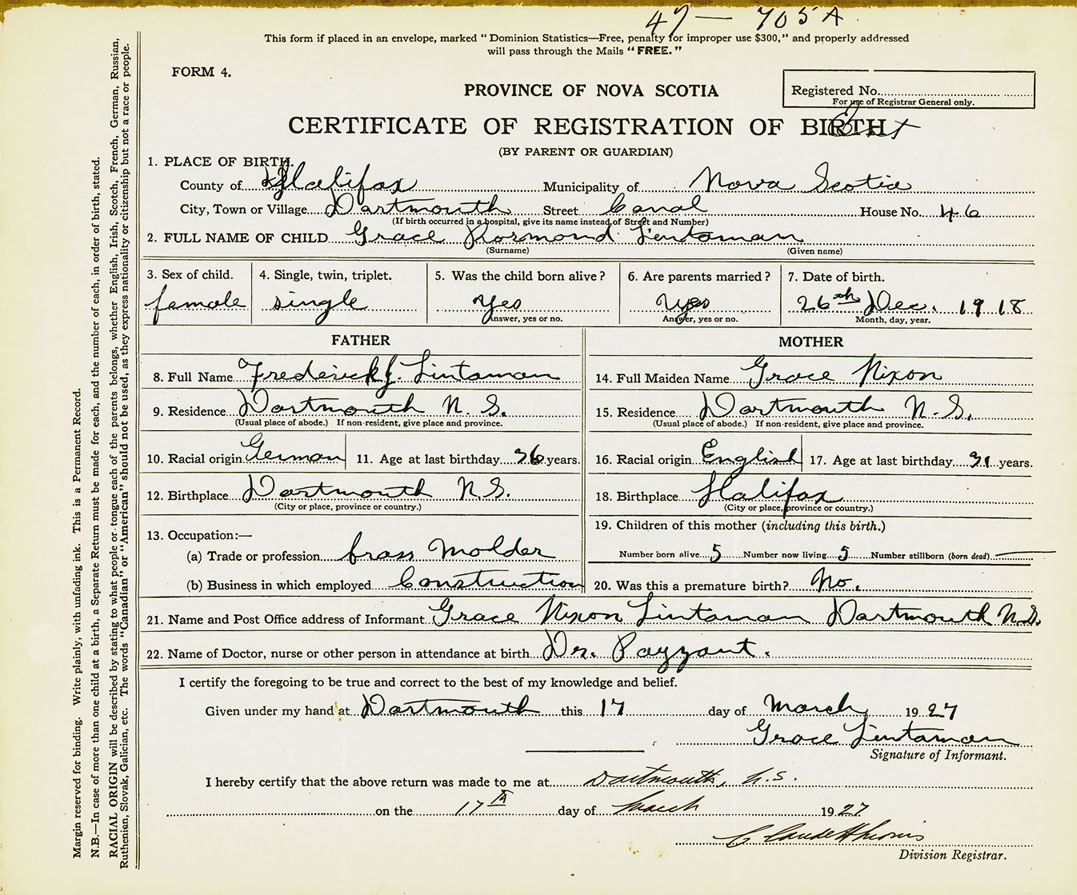 47 — 705 A
This form if placed in an envelope, marked "Dominion Statistics—Free, penalty for improper use $300," and properly addressed
will pass through the Mails "FREE."
FORM 4.
Registered No.
For use of Registrar General only.
PROVINCE OF NOVA SCOTIA
CERTIFICATE OF REGISTRATION OF BIRTH
(BY PARENT OR GUARDIAN)
1. PLACE OF BIRTH.
County of Halifax Municipality of Nova Scotia
City, Town or Village Dartmouth Street Canal House No. 46
(If birth occurred in a hospital, give its name instead of Street and Number)
2. FULL NAME OF CHILD Grace Rosmond Lintaman
(Surname) (Given name)
3. Sex of child. 4. Single, twin, triplet. 5. Was the child born alive? 6. Are parents married? 7. Date of birth.
female single Yes Yes 26th Dec. 1918
Answer, yes or no. Answer, yes or no. Month, day, year.
FATHER
8. Full Name Frederick J. Lintaman
9. Residence Dartmouth N.S.
(Usual place of abode.) If non-resident, give place and province.
10. Racial origin German 11. Age at last birthday 36 years.
12. Birthplace Dartmouth N.S.
(City or place, province or country.)
13. Occupation:—
(a) Trade or profession brass Molder
(b) Business in which employed Construction
MOTHER
14. Full Maiden Name Grace Nixon
15. Residence Dartmouth N.S.
(Usual place of abode.) If non-resident, give place and province.
16. Racial origin English 17. Age at last birthday 31 years.
18. Birthplace Halifax
(City or place, province or country.)
19. Children of this mother (including this birth.)
Number born alive 5 Number now living 5 Number stillborn (born dead) —
20. Was this a premature birth? No.
21. Name and Post Office address of Informant Grace Nixon Lintaman Dartmouth N.S.
22. Name of Doctor, nurse or other person in attendance at birth Dr. Payzant.
I certify the foregoing to be true and correct to the best of my knowledge and belief.
Given under my hand at Dartmouth this 17 day of March 1927
Grace Lintaman
Signature of Informant.
I hereby certify that the above return was made to me at Dartmouth, N.S.
on the 17th day of March 1927
Division Registrar.
Margin reserved for binding. Write plainly, with unfading ink. This is a Permanent Record.
N.B.—In case of more than one child at a birth, a Separate Return must be made for each, and the number of each, in order of birth, stated.
RACIAL ORIGIN will be described by stating to what people or tongue each of the parents belongs, whether English, Irish, Scotch, French, German, Russian,
Ruthenian, Slovak, Galician, etc. The words "Canadian" or "American" should not be used, as they express nationality or citizenship but not a race or people.